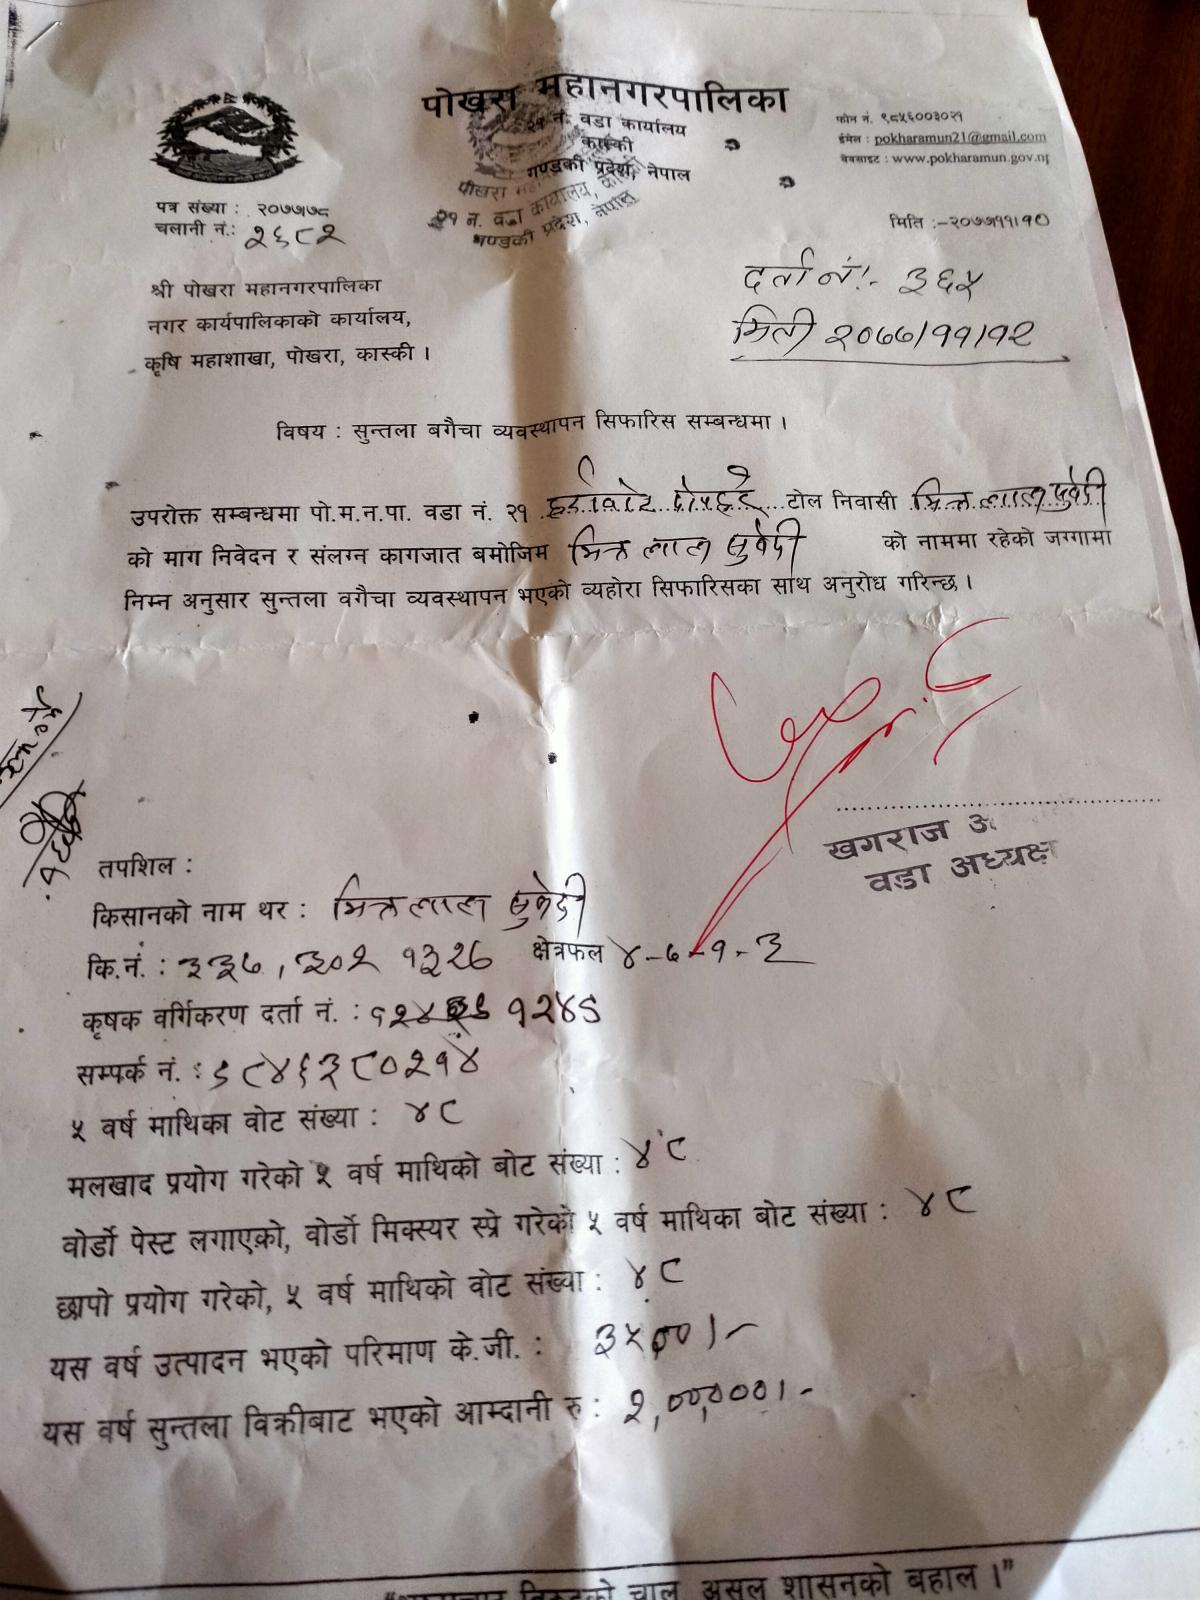 पोखरा महानगरपालिका
२१ नं. वडा कार्यालय
कास्की
गण्डकी प्रदेश, नेपाल
पोखरा
२१ न. वडा कार्यालय,
गण्डकी प्रदेश, नेपाल
फोन नं. ९८५६००३०२१
ईमेल : pokharamun21@gmail.com
वेबसाइट : www.pokharamun.gov.np
पत्र संख्या : २०७७।७८
चलानी नं.: २६८२
मिति :-२०७७।११।१०
श्री पोखरा महानगरपालिका
नगर कार्यपालिकाको कार्यालय,
कृषि महाशाखा, पोखरा, कास्की ।
दर्ता नं:- ३६५
मिती २०७७/११/१२
विषय : सुन्तला बगैचा व्यवस्थापन सिफारिस सम्बन्धमा ।
उपरोक्त सम्बन्धमा पो.म.न.पा. वडा नं. २१ टोल निवासी मित्र लाल सुवेदी
को माग निवेदन र संलग्न कागजात बमोजिम मित्र लाल सुवेदी को नाममा रहेको जग्गामा
निम्न अनुसार सुन्तला वगैचा व्यवस्थापन भएको व्यहोरा सिफारिसका साथ अनुरोध गरिन्छ ।
खगराज
वडा अध्यक्ष
तपशिल :
किसानको नाम थर : मित्र लाल सुवेदी
कि.नं. : ३३७, ३०२ १३२६ क्षेत्रफल ४-७-१-३
कृषक वर्गिकरण दर्ता नं. : १२४९
सम्पर्क नं. : ९८४६३८०२१४
५ वर्ष माथिका वोट संख्या : ४८
मलखाद प्रयोग गरेको ५ वर्ष माथिको बोट संख्या : ४८
वोर्डो पेस्ट लगाएको, वोर्डो मिक्स्यर स्प्रे गरेको ५ वर्ष माथिका बोट संख्या : ४८
छापो प्रयोग गरेको, ५ वर्ष माथिको वोट संख्या : ४८
यस वर्ष उत्पादन भएको परिमाण के.जी. : ३५००।-
यस वर्ष सुन्तला विक्रीबाट भएको आम्दानी रु : २,००,०००।-
चाल, असल शासनको बहाल ।"